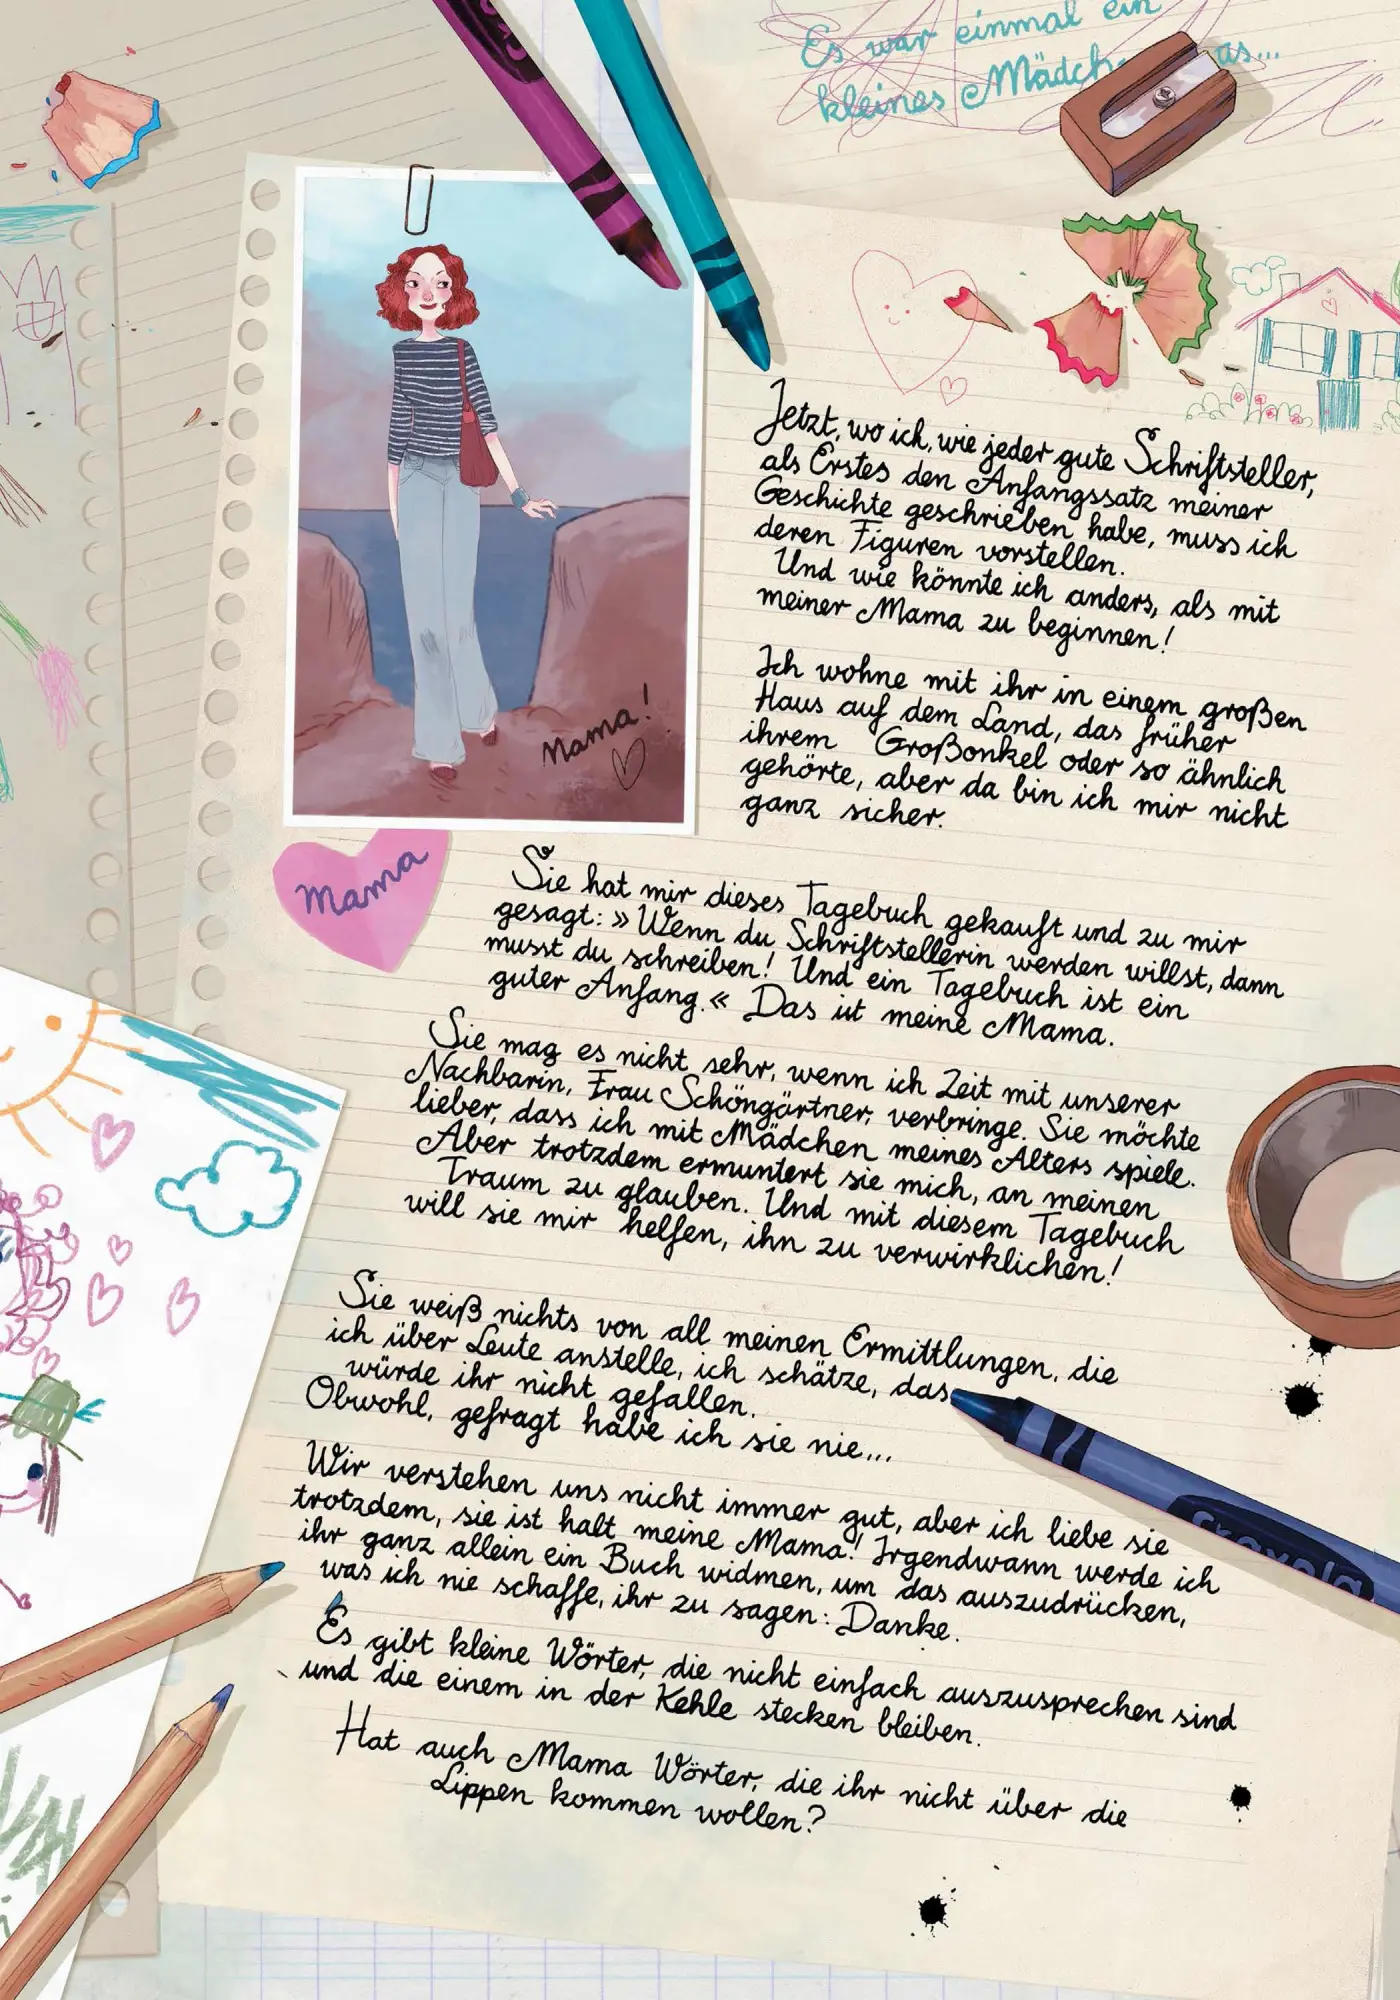 Es war einmal ein
kleines Mädch as...
Jetzt, wo ich, wie jeder gute Schriftsteller,
als Erstes den Anfangssatz meiner
Geschichte geschrieben habe, muss ich
deren Figuren vorstellen.
Und wie könnte ich anders, als mit
meiner Mama zu beginnen!
Ich wohne mit ihr in einem großen
Haus auf dem Land, das früher
ihrem Großonkel oder so ähnlich
gehörte, aber da bin ich mir nicht
ganz sicher.
Mama!
Mama
Sie hat mir dieses Tagebuch gekauft und zu mir
gesagt: »Wenn du Schriftstellerin werden willst, dann
musst du schreiben! Und ein Tagebuch ist ein
guter Anfang.« Das ist meine Mama.
Sie mag es nicht sehr, wenn ich Zeit mit unserer
Nachbarin, Frau Schöngärtner, verbringe. Sie möchte
lieber, dass ich mit Mädchen meines Alters spiele.
Aber trotzdem ermuntert sie mich, an meinen
Traum zu glauben. Und mit diesem Tagebuch
will sie mir helfen, ihn zu verwirklichen!
Sie weiß nichts von all meinen Ermittlungen, die
ich über Leute anstelle, ich schätze, das
würde ihr nicht gefallen.
Obwohl, gefragt habe ich sie nie...
Wir verstehen uns nicht immer gut, aber ich liebe sie
trotzdem, sie ist halt meine Mama! Irgendwann werde ich
ihr ganz allein ein Buch widmen, um das auszudrücken,
was ich nie schaffe, ihr zu sagen: Danke.
Es gibt kleine Wörter, die nicht einfach auszusprechen sind
und die einem in der Kehle stecken bleiben.
Hat auch Mama Wörter, die ihr nicht über die
Lippen kommen wollen?